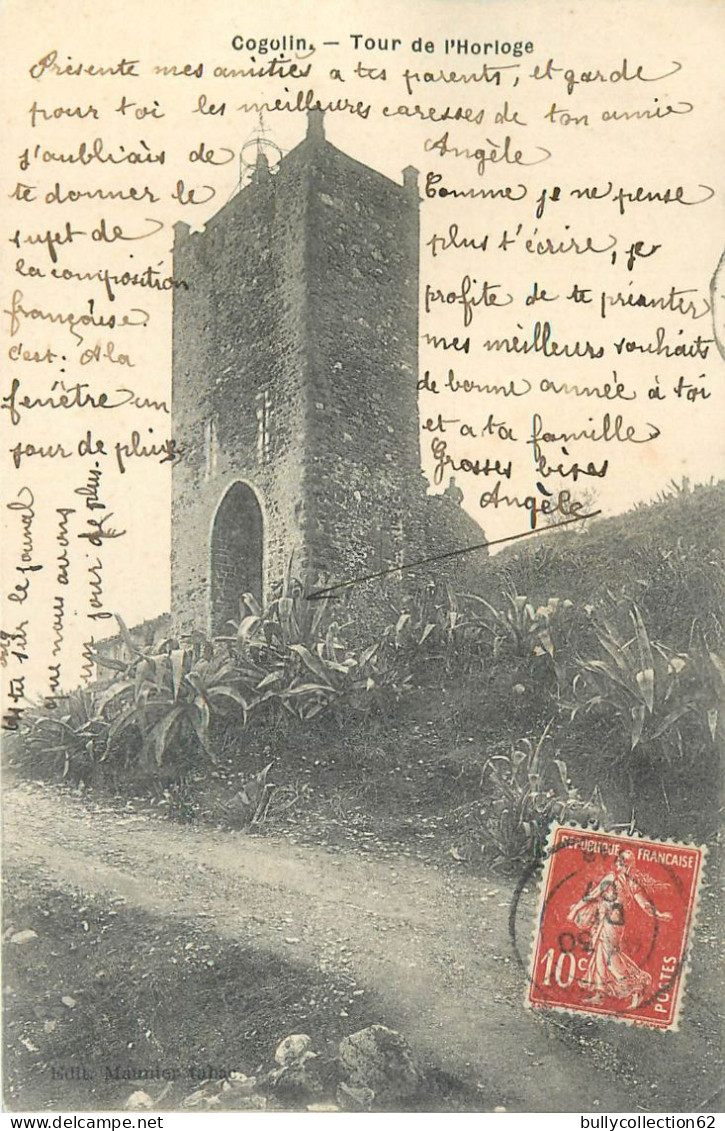 Cogolin. — Tour de l'Horloge
Présente mes amitiés a tes parents, et garde
pour toi les meilleures caresses de ton amie
Angèle
j'aubliais de
te donner le
sujet de
la composition
française.
c'est : A la
fenêtre un
jour de pluie
As tu sur le journal
que nous avons
un jour de plus
Comme je ne pense
plus t'écrire, je
profite de te présenter
mes meilleurs souhaits
de bonne année à toi
et a ta famille
Grosses bises
Angèle
REPUBLIQUE FRANÇAISE
10c
POSTES
30
07
Edit. Maunier tabac
bullycollection62